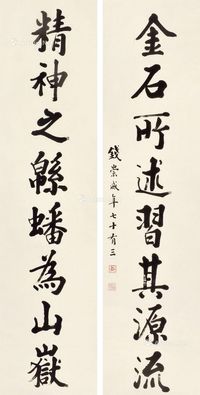 金石所述習其源流
精神之緜蟠為山嶽
錢崇威年七十有三